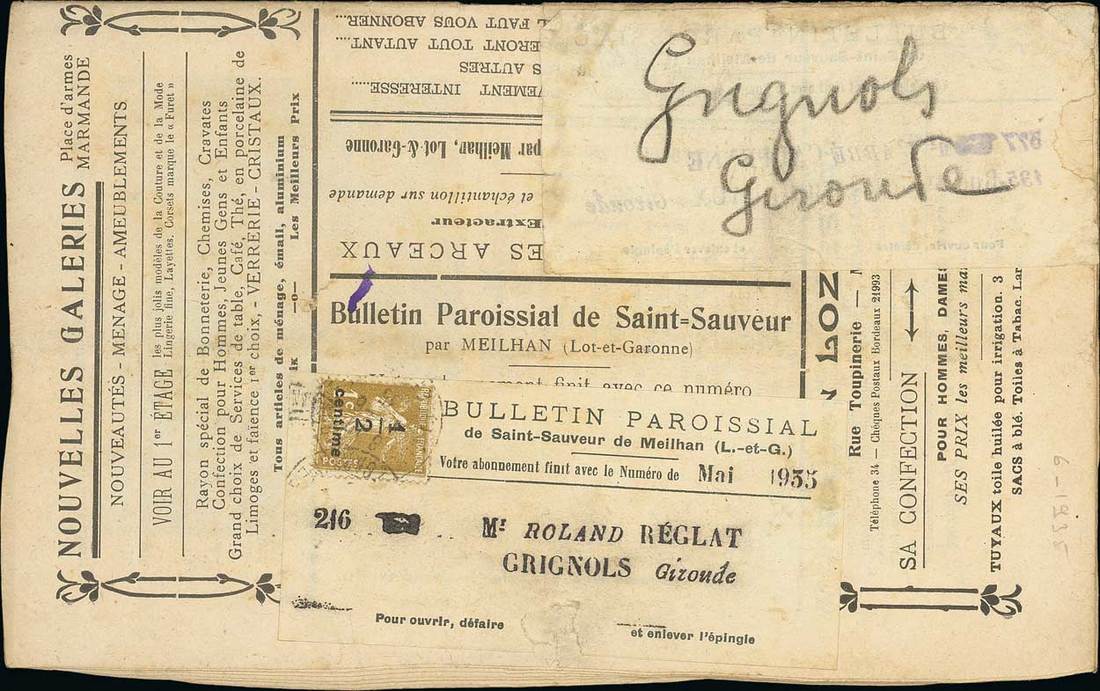 NOUVELLES GALERIES
Place d'armes
MARMANDE
NOUVEAUTÉS - MENAGE - AMEUBLEMENTS.
VOIR AU 1er ÉTAGE
les plus jolis modèles de la Couture et de la Mode
Lingerie fine, Layettes, Corsets marque le « Furet »
Rayon spécial de Bonneterie, Chemises, Cravates
Confection pour Hommes, Jeunes Gens et Enfants
Grand choix de Services de table, Café, Thé, en porcelaine de
Limoges et faience 1er choix, - VERRERIE - CRISTAUX.
Tous articles de ménage, émail, aluminium
—o— Les Meilleurs Prix
L FAUT VOUS ABONNER...
ERONT TOUT AUTANT....
S AUTRES
VEMENT INTERESSE.....
par Meilhan, Lot-&-Garonne
et échantillon sur demande
Extracteur
ES ARCEAUX
Grignols
Gironde
Bulletin Paroissial de Saint=Sauveur
par MEILHAN (Lot-et-Garonne)
finit avec ce numéro
1/2
centime
POSTES
BULLETIN PAROISSIAL
de Saint-Sauveur de Meilhan (L.-et-G.)
Votre abonnement finit avec le Numéro de Mai 1935
216
Mr ROLAND RÉGLAT
GRIGNOLS Gironde
Pour ouvrir, défaire
et enlever l'épingle
N LOZ
Rue Toupinerie —
Téléphone 34 — Chèques Postaux Bordeaux 21993
SA CONFECTION
POUR HOMMES, DAMES
SES PRIX les meilleurs ma
TUYAUX toile huilée pour irrigation. 3
SACS à blé. Toiles à Tabac. Lar